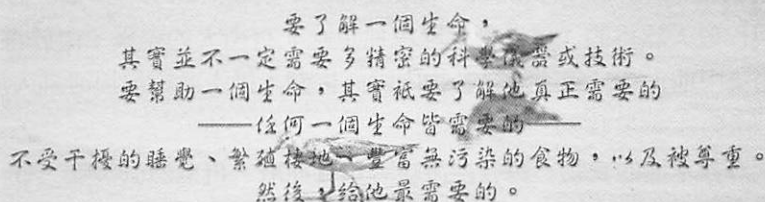 要了解一個生命，
其實並不一定需要多精密的科學儀器或技術。
要幫助一個生命，其實祇要了解他真正需要的
——任何一個生命皆需要的——
不受干擾的睡覺、繁殖棲地、豐富無污染的食物，以及被尊重。
然後，給他最需要的。